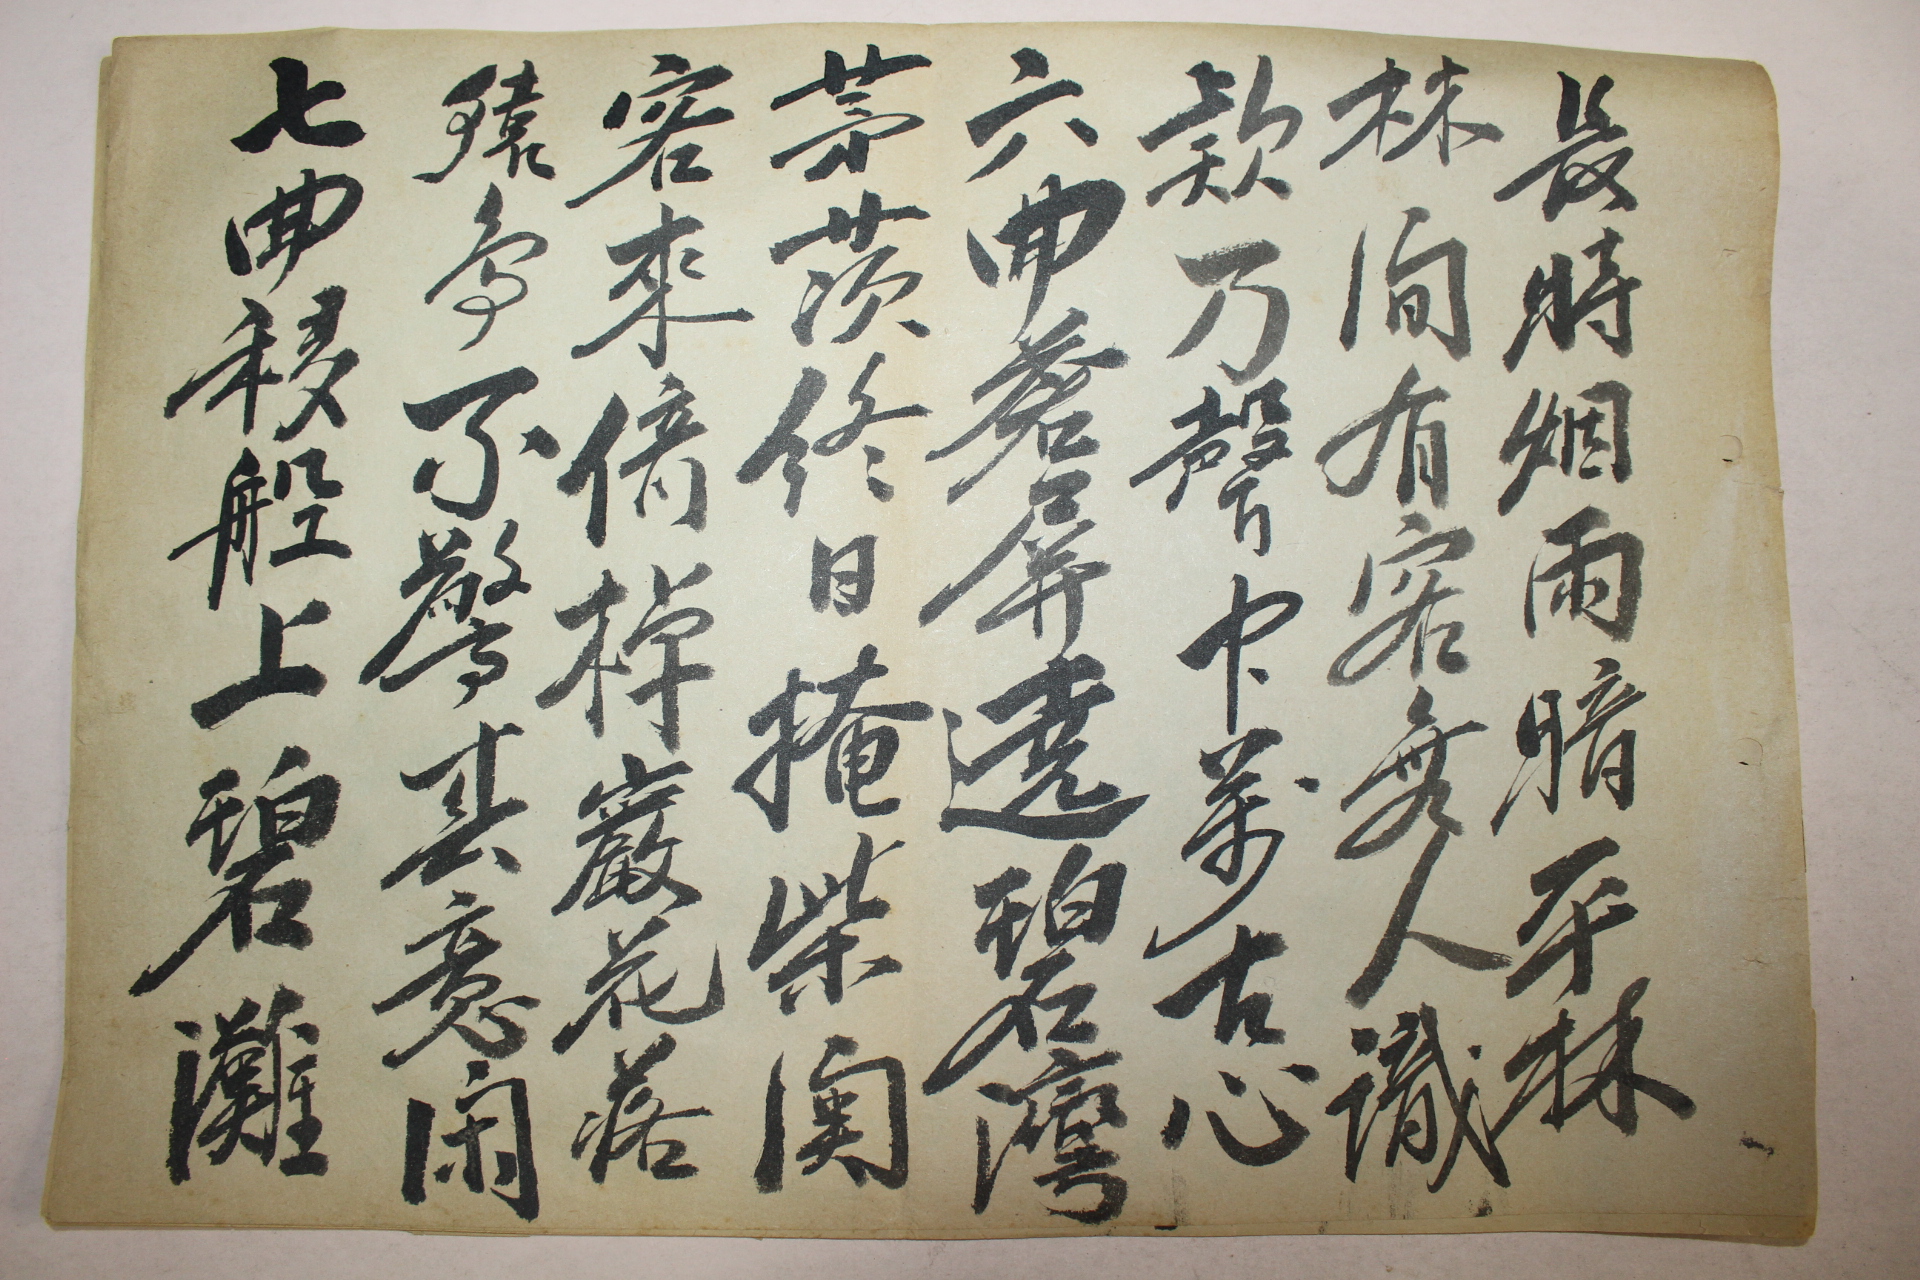 長時烟雨暗平林
林間有客無人識
欵乃聲中萬古心
六曲蒼屏遶碧灣
茅茨終日掩柴関
客來倚棹巖花落
猿鳥不驚春意閑
七曲移船上碧灘